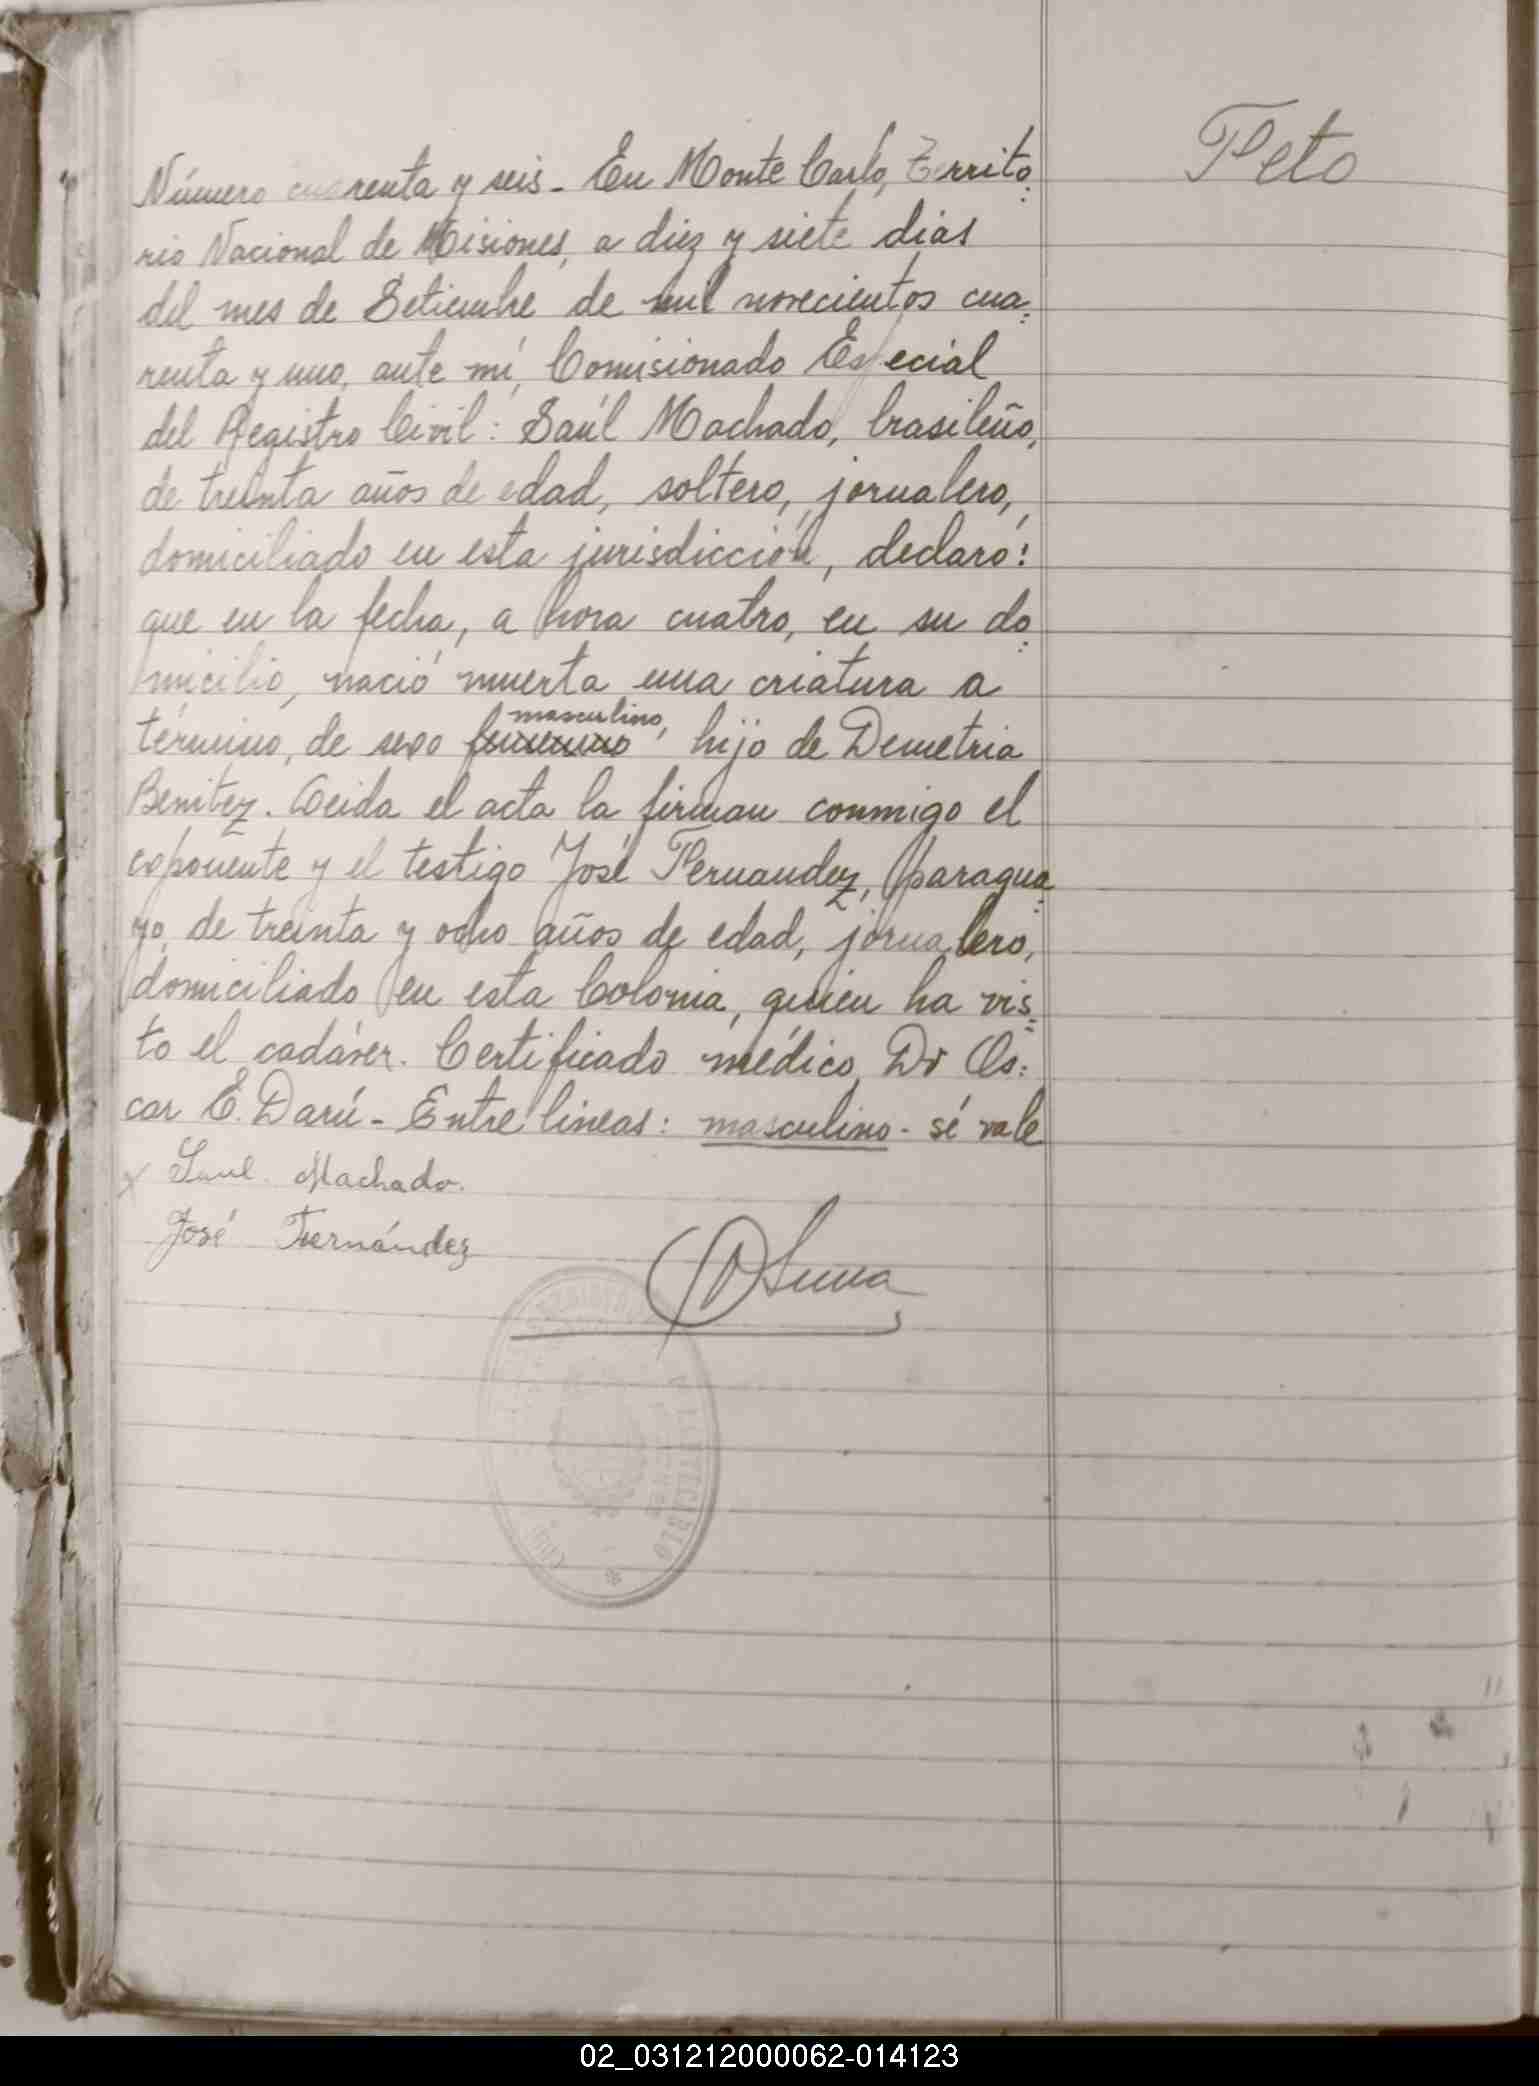 Feto
Número cuarenta y seis - En Monte Carlo, Territo=
rio Nacional de Misiones, a diez y siete dias
del mes de Setiembre de mil novecientos cua=
renta y uno, ante mí, Comisionado Especial
del Registro Civil: Saúl Machado, brasileño,
de treinta años de edad, soltero, jornalero,
domiciliado en esta jurisdicción, declaró:
que en la fecha, a hora cuatro, en su do=
micilio, nació muerta una criatura a
masculino,
término, de sexo femenino hijo de Demetria
Benitez. Leida el acta la firman conmigo el
exponente y el testigo José Fernandez, paragua=
yo, de treinta y ocho años de edad, jornalero,
domiciliado en esta Colonia, quien ha vis=
to el cadáver. Certificado médico, Dr Os=
car E. Darú - Entre lineas: masculino - sé vale
x Saul. Machado.
José Fernández
MONTECARLO
02_031212000062-014123